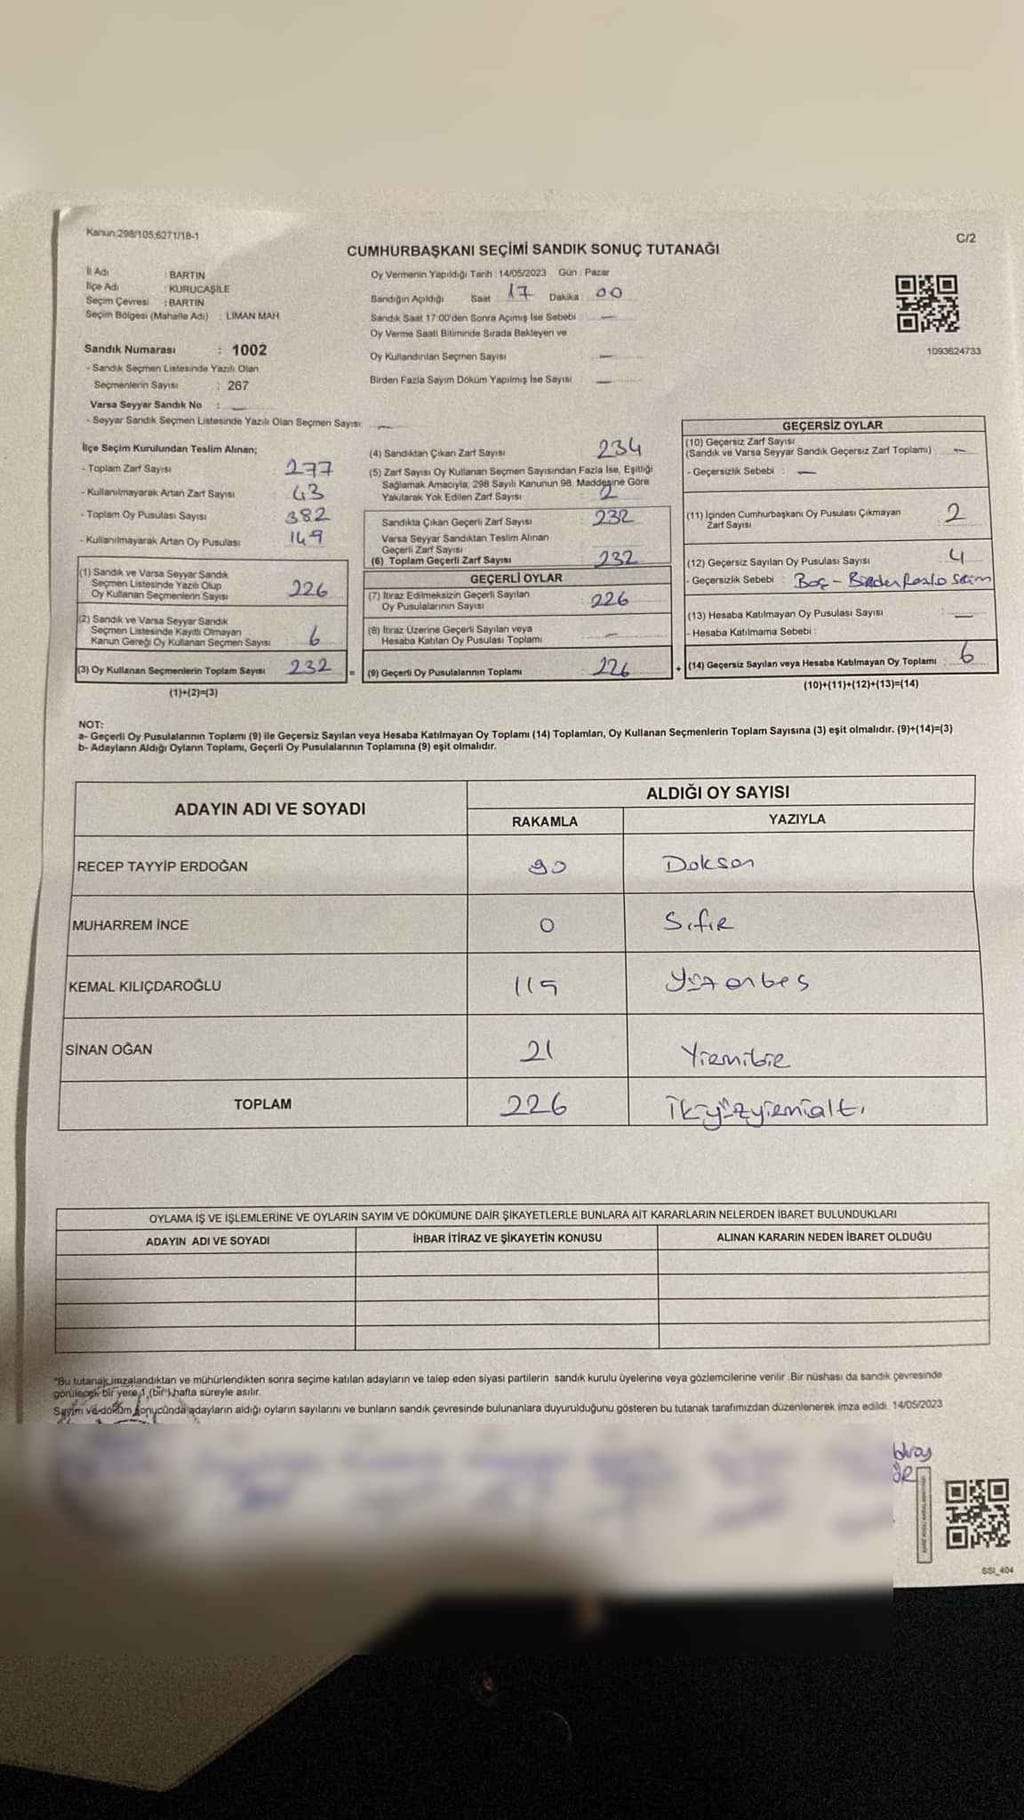 Kanun:298/105;6271/18-1
C/2
CUMHURBAŞKANI SEÇİMİ SANDIK SONUÇ TUTANAĞI
İl Adı : BARTIN
İlçe Adı : KURUCAŞİLE
Seçim Çevresi : BARTIN
Seçim Bölgesi (Mahalle Adı) : LİMAN MAH
Sandık Numarası : 1002
- Sandık Seçmen Listesinde Yazılı Olan
Seçmenlerin Sayısı : 267
Varsa Seyyar Sandık No :
- Seyyar Sandık Seçmen Listesinde Yazılı Olan Seçmen Sayısı:
Oy Vermenin Yapıldığı Tarih : 14/05/2023 Gün : Pazar
Sandığın Açıldığı Saat 17 Dakika 00
Sandık Saat 17:00'den Sonra Açımış İse Sebebi
Oy Verme Saati Bitiminde Sırada Bekleyen ve
Oy Kullandırılan Seçmen Sayısı
Birden Fazla Sayım Döküm Yapılmış İse Sayısı
1093624733
İlçe Seçim Kurulundan Teslim Alınan;
- Toplam Zarf Sayısı 277
- Kullanılmayarak Artan Zarf Sayısı 43
- Toplam Oy Pusulası Sayısı 382
- Kullanılmayarak Artan Oy Pusulası 149
(1) Sandık ve Varsa Seyyar Sandık
Seçmen Listesinde Yazılı Olup
Oy Kullanan Seçmenlerin Sayısı 226
(2) Sandık ve Varsa Seyyar Sandık
Seçmen Listesinde Kayıtlı Olmayan
Kanun Gereği Oy Kullanan Seçmen Sayısı 6
(3) Oy Kullanan Seçmenlerin Toplam Sayısı 232 =
(1)+(2)=(3)
(4) Sandıktan Çıkan Zarf Sayısı 234
(5) Zarf Sayısı Oy Kullanan Seçmen Sayısından Fazla İse, Eşitliği
Sağlamak Amacıyla, 298 Sayılı Kanunun 98. Maddesine Göre
Yakılarak Yok Edilen Zarf Sayısı 2
Sandıkta Çıkan Geçerli Zarf Sayısı 232
Varsa Seyyar Sandıktan Teslim Alınan
Geçerli Zarf Sayısı
(6) Toplam Geçerli Zarf Sayısı 232
GEÇERLİ OYLAR
(7) İtiraz Edilmeksizin Geçerli Sayılan
Oy Pusulalarının Sayısı 226
(8) İtiraz Üzerine Geçerli Sayılan veya
Hesaba Katılan Oy Pusulası Toplamı
(9) Geçerli Oy Pusulalarının Toplamı 226 +
GEÇERSİZ OYLAR
(10) Geçersiz Zarf Sayısı
(Sandık ve Varsa Seyyar Sandık Geçersiz Zarf Toplamı)
- Geçersizlik Sebebi :
(11) İçinden Cumhurbaşkanı Oy Pusulası Çıkmayan
Zarf Sayısı 2
(12) Geçersiz Sayılan Oy Pusulası Sayısı 4
- Geçersizlik Sebebi : Boş - Birden fazla seçim
(13) Hesaba Katılmayan Oy Pusulası Sayısı
- Hesaba Katılmama Sebebi :
(14) Geçersiz Sayılan veya Hesaba Katılmayan Oy Toplamı 6
(10)+(11)+(12)+(13)=(14)
NOT:
a- Geçerli Oy Pusulalarının Toplamı (9) ile Geçersiz Sayılan veya Hesaba Katılmayan Oy Toplamı (14) Toplamları, Oy Kullanan Seçmenlerin Toplam Sayısına (3) eşit olmalıdır. (9)+(14)=(3)
b- Adayların Aldığı Oyların Toplamı, Geçerli Oy Pusulalarının Toplamına (9) eşit olmalıdır.
ADAYIN ADI VE SOYADI
ALDIĞI OY SAYISI
RAKAMLA YAZIYLA
RECEP TAYYİP ERDOĞAN 90 Doksan
MUHARREM İNCE 0 Sıfır
KEMAL KILIÇDAROĞLU 115 Yüz onbeş
SİNAN OĞAN 21 Yirmibir
TOPLAM 226 İkiyüzyirmialtı
OYLAMA İŞ VE İŞLEMLERİNE VE OYLARIN SAYIM VE DÖKÜMÜNE DAİR ŞİKAYETLERLE BUNLARA AİT KARARLARIN NELERDEN İBARET BULUNDUKLARI
ADAYIN ADI VE SOYADI İHBAR İTİRAZ VE ŞİKAYETİN KONUSU ALINAN KARARIN NEDEN İBARET OLDUĞU
"Bu tutanak imzalandıktan ve mühürlendikten sonra seçime katılan adayların ve talep eden siyasi partilerin sandık kurulu üyelerine veya gözlemcilerine verilir. Bir nüshası da sandık çevresinde
görülecek bir yere 1 (bir) hafta süreyle asılır.
Sayım ve döküm sonucunda adayların aldığı oyların sayılarını ve bunların sandık çevresinde bulunanlara duyurulduğunu gösteren bu tutanak tarafımızdan düzenlenerek imza edildi. 14/05/2023
SSI_404